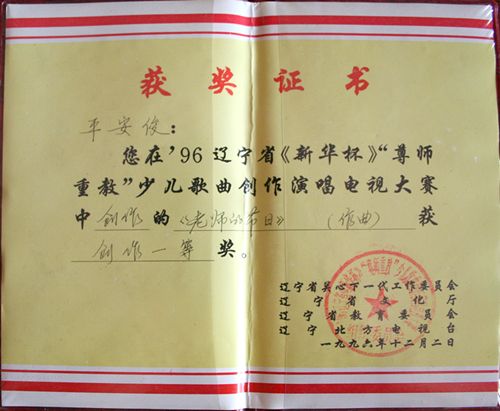 获奖证书
平安俊：
您在'96辽宁省《新华杯》“尊师
重教”少儿歌曲创作演唱电视大赛
中创作的《老师的节日》（作曲）获
创作一等奖。
辽宁省关心下一代工作委员会
辽宁省文化厅
辽宁省教育委员会
辽宁北方电视台
一九九六年十二月二日